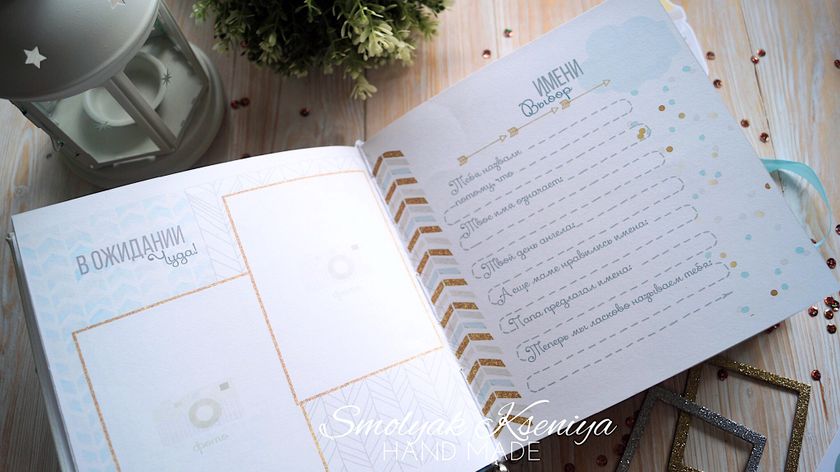 В ОЖИДАНИИ
Чуда!
фото
фото
ИМЕНИ
Выбор
Тебя назвали
потому что
Твое имя означает:
Твой день ангела:
А еще маме нравились имена:
Папа предлагал имена:
Теперь мы ласково называем тебя:
Smolyak Kseniya
HAND MADE